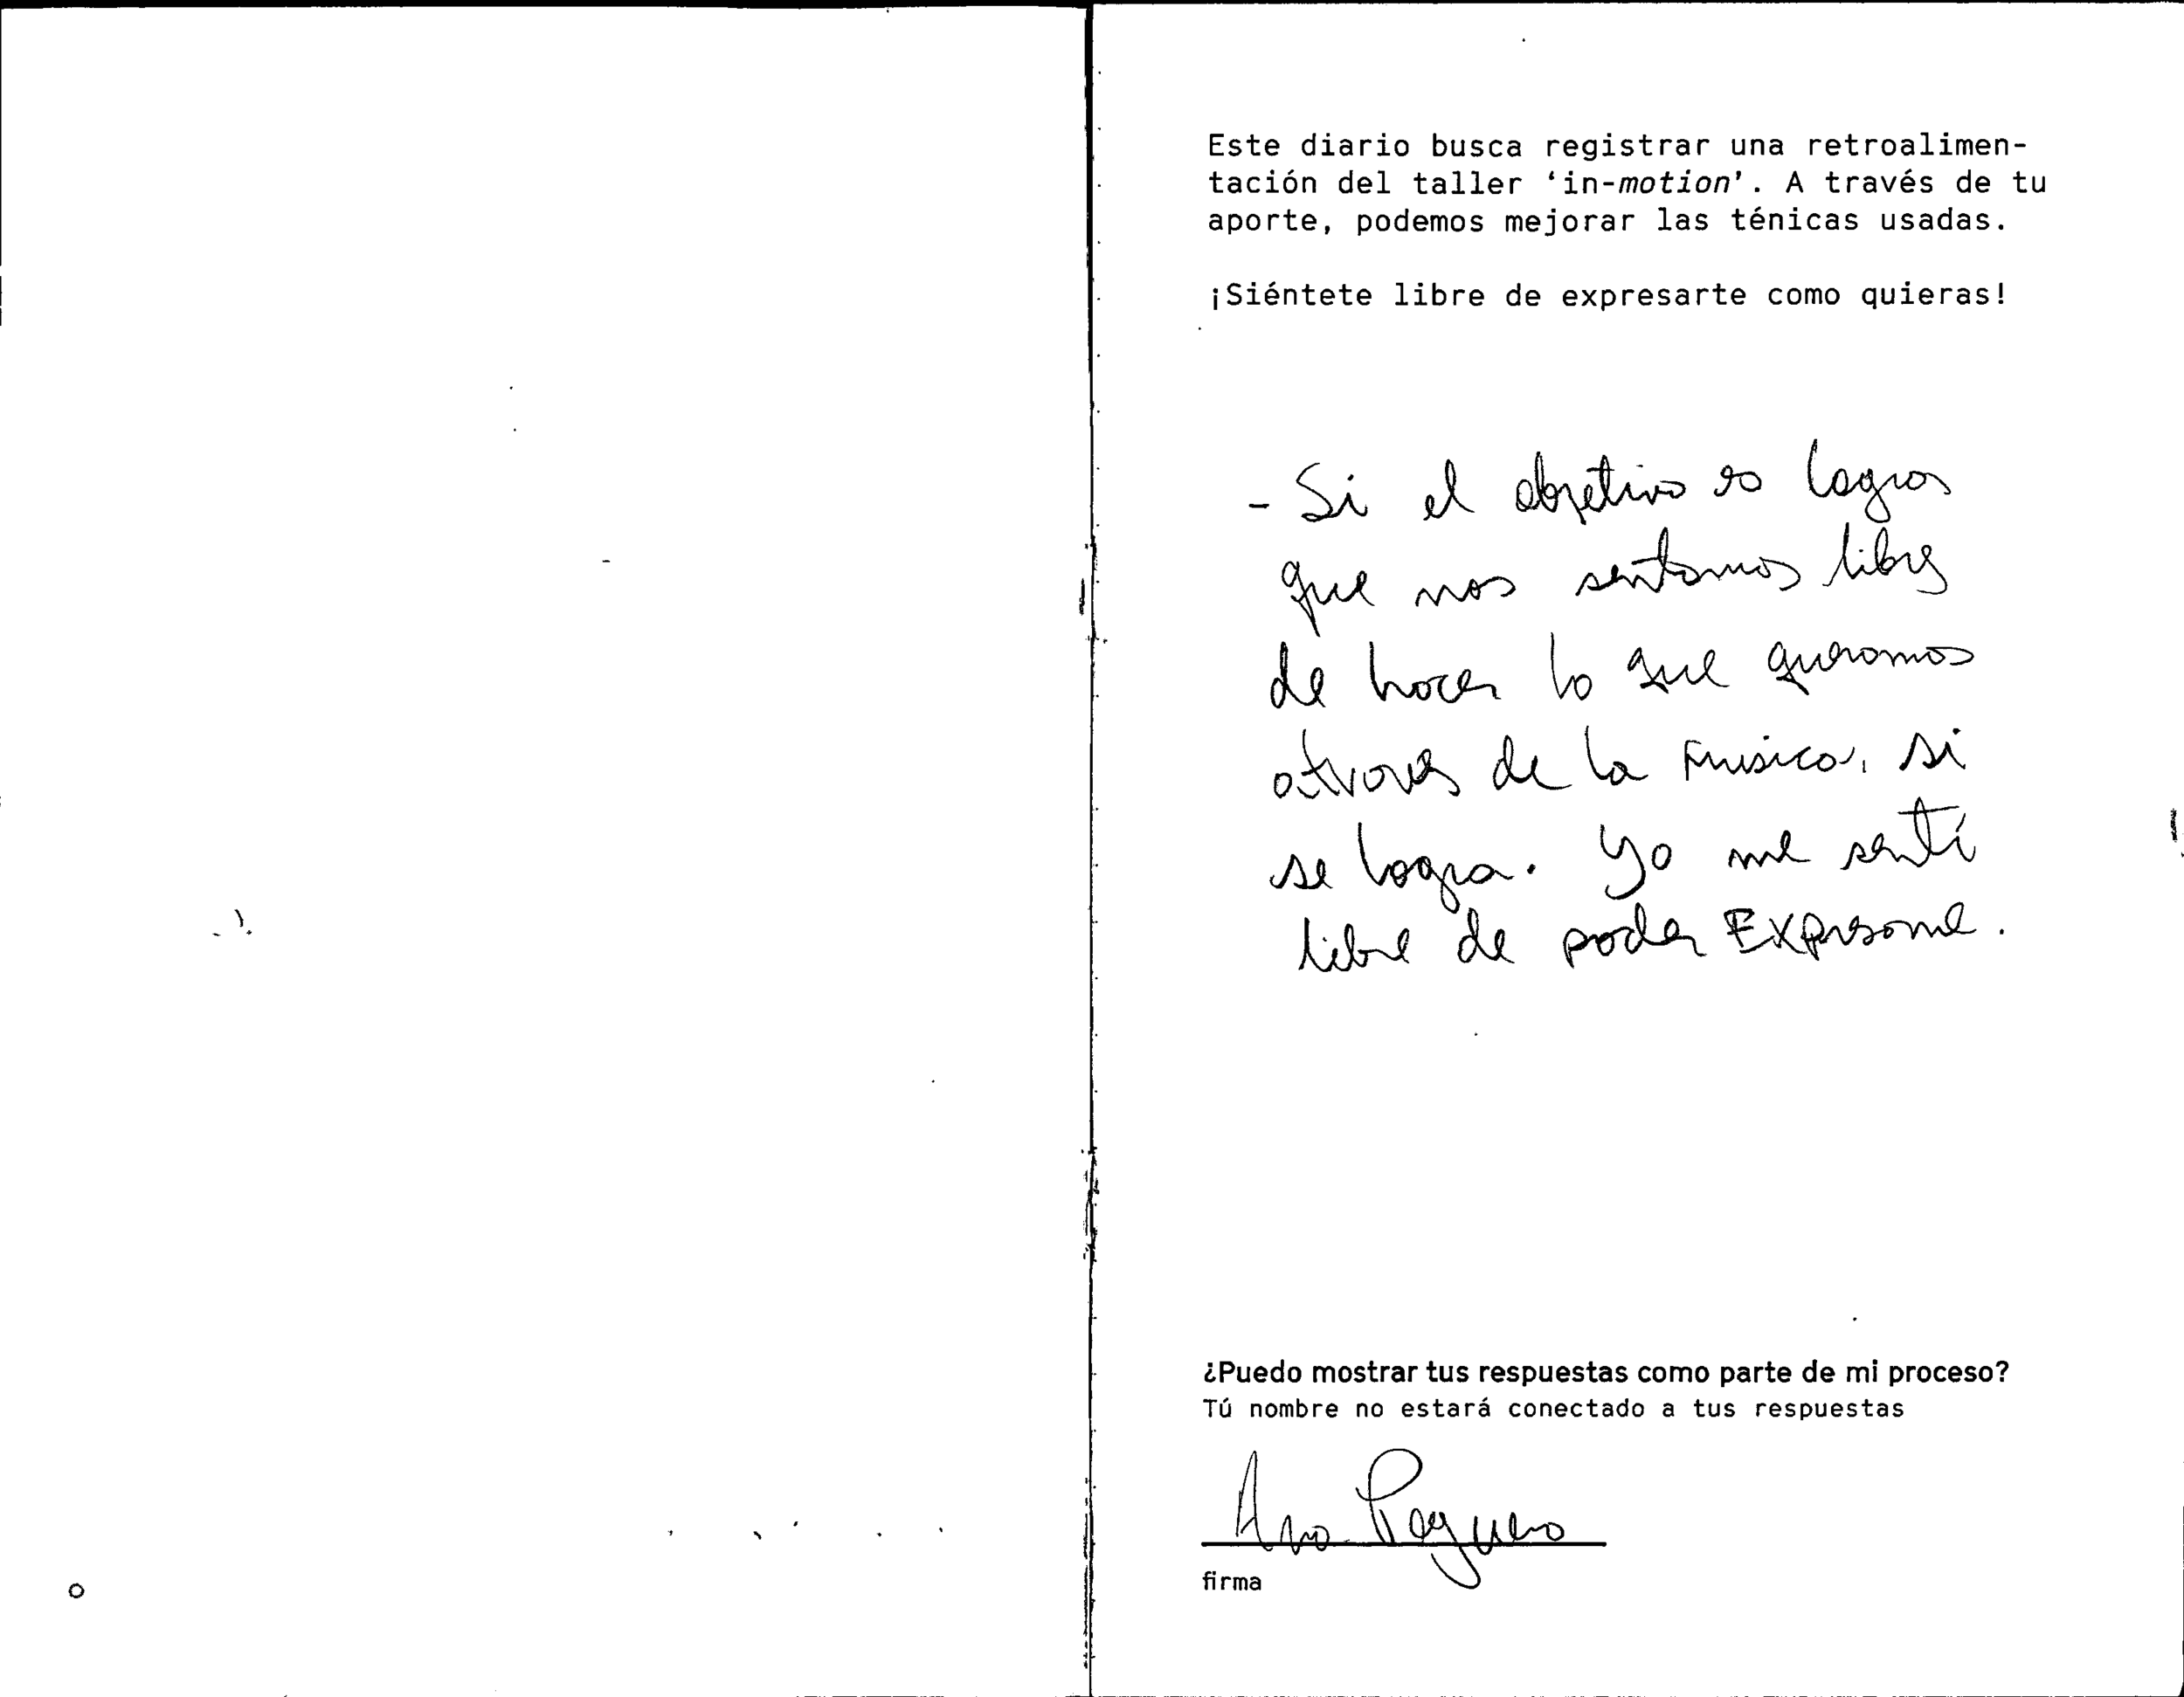 Este diario busca registrar una retroalimen-
tación del taller ‘in-motion’. A través de tu
aporte, podemos mejorar las ténicas usadas.
¡Siéntete libre de expresarte como quieras!
- Si el objetivo es lograr
que nos sentamos libres
de hacer lo que queramos
atraves de la musica, si
se logra. Yo me sentí
libre de poder Expresarme.
¿Puedo mostrar tus respuestas como parte de mi proceso?
Tú nombre no estará conectado a tus respuestas
Ana Peguero
firma